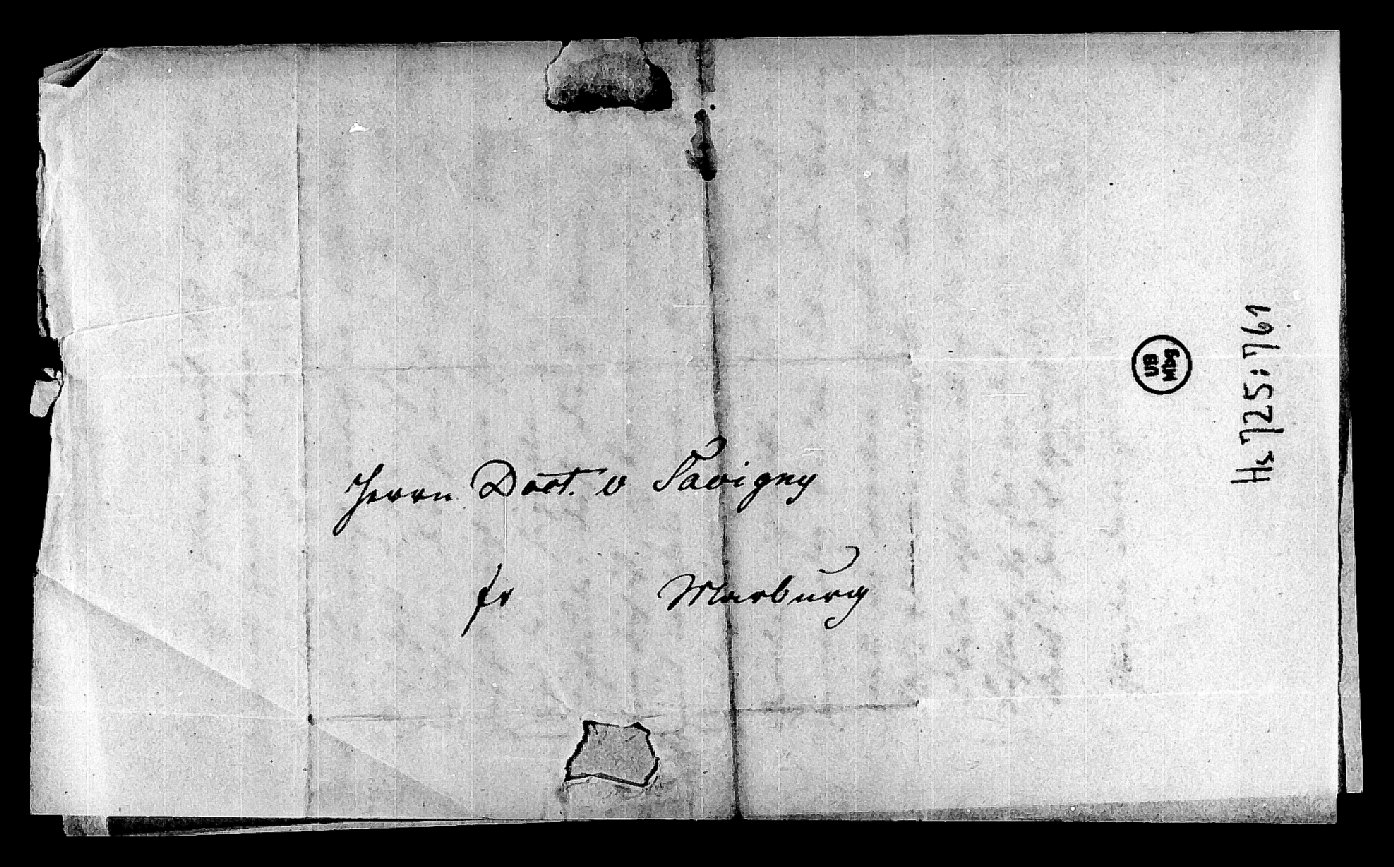 Herrn Doct. v Savigny
fr Marburg
UB
Mbg
Hs 725:761